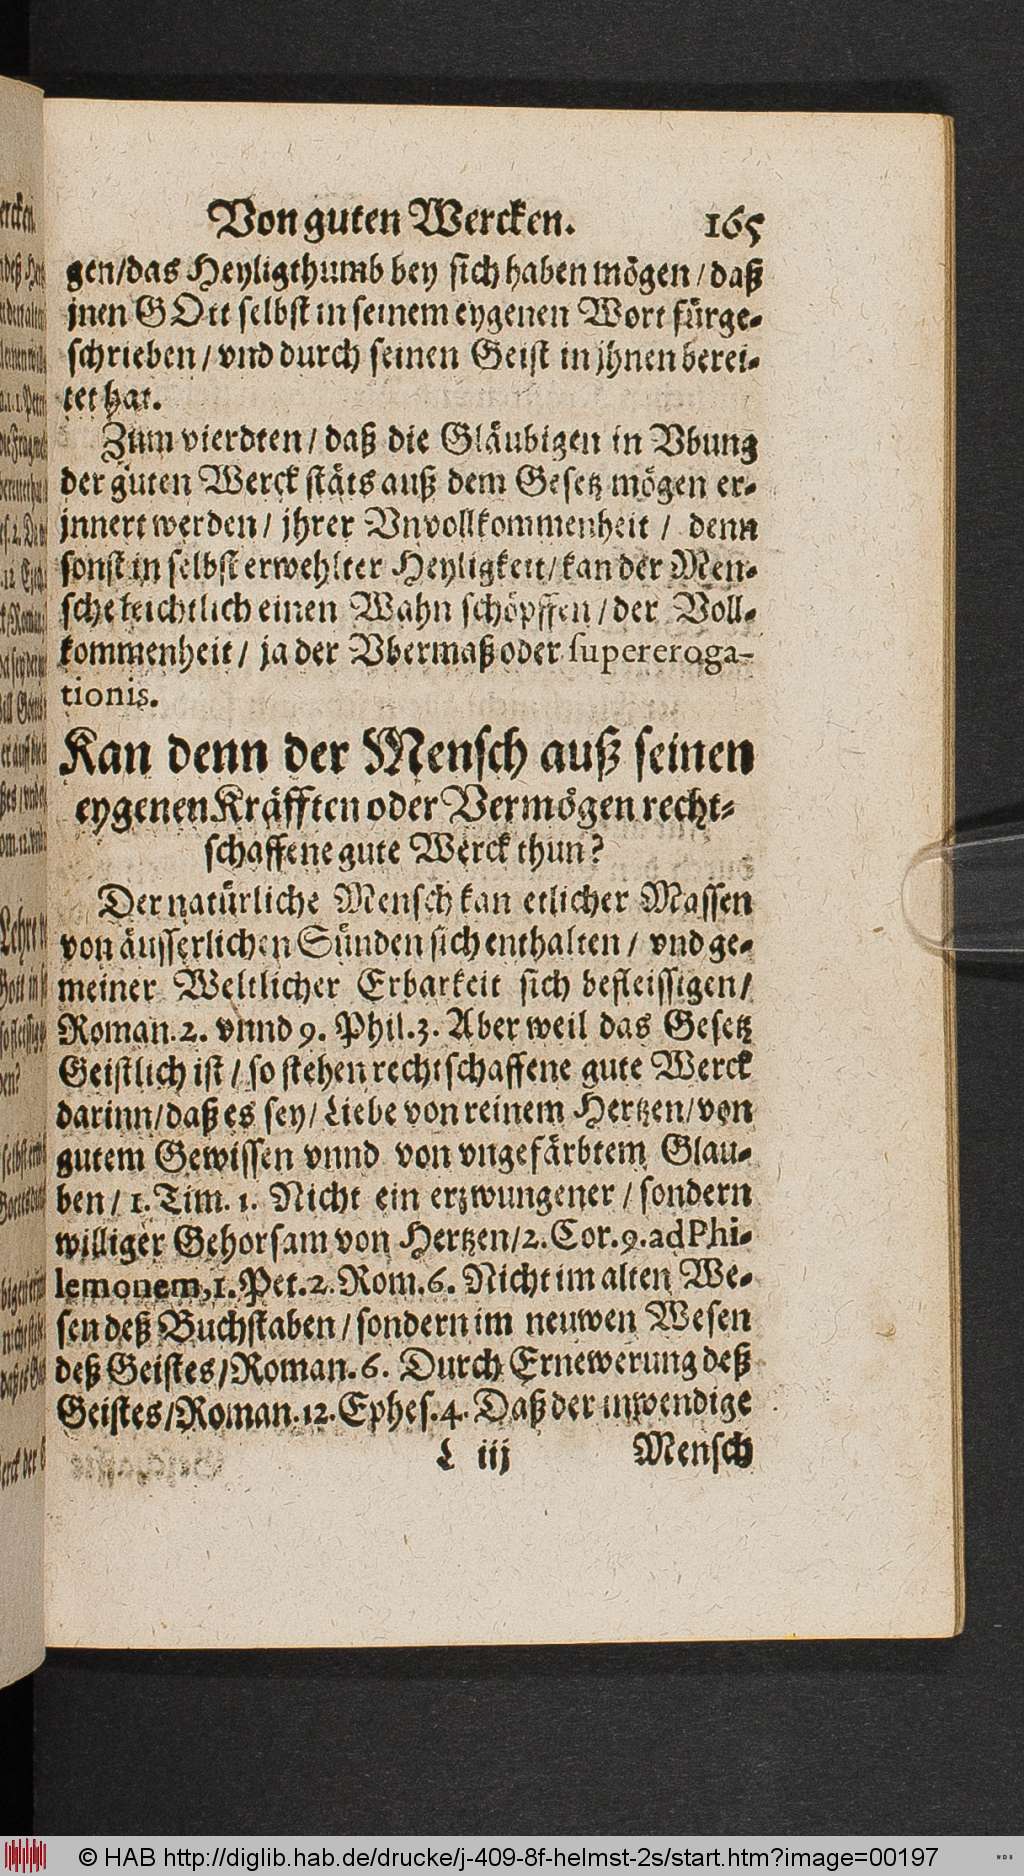 Von guten Wercken. 165
gen/das Heyligthumb bey sich haben mögen/daß
jnen GOtt selbst in seinem eygenen Wort fürge-
schrieben/vnd durch seinen Geist in jhnen berei-
tet hat.
Zum vierdten/daß die Gläubigen in Vbung
der guten Werck stäts auß dem Gesetz mögen er-
jnnert werden/jhrer Vnvollkommenheit/denn
sonst in selbst erwehlter Heyligkeit/kan der Men-
sche leichtlich einen Wahn schöpffen/der Voll-
kommenheit/ja der Vbermaß oder supereroga-
tionis.
Kan denn der Mensch auß seinen
eygenen Kräfften oder Vermögen recht-
schaffene gute Werck thun?
Der natürliche Mensch kan etlicher Massen
von äusserlichen Sünden sich enthalten/vnd ge-
meiner Weltlicher Erbarkeit sich befleissigen/
Roman.2. vnnd 9. Phil.3. Aber weil das Gesetz
Geistlich ist/so stehen rechtschaffene gute Werck
darinn/daß es sey/Liebe von reinem Hertzen/von
gutem Gewissen vnnd von vngefärbtem Glau-
ben/1. Tim. 1. Nicht ein erzwungener/sondern
williger Gehorsam von Hertzen/2. Cor. 9. ad Phi-
lemonem, 1. Pet. 2. Rom. 6. Nicht im alten We-
sen deß Buchstaben/sondern im neuwen Wesen
deß Geistes/Roman. 6. Durch Ernewerung deß
Geistes/Roman. 12. Ephes. 4. Daß der inwendige
L iij Mensch
© HAB http://diglib.hab.de/drucke/j-409-8f-helmst-2s/start.htm?image=00197